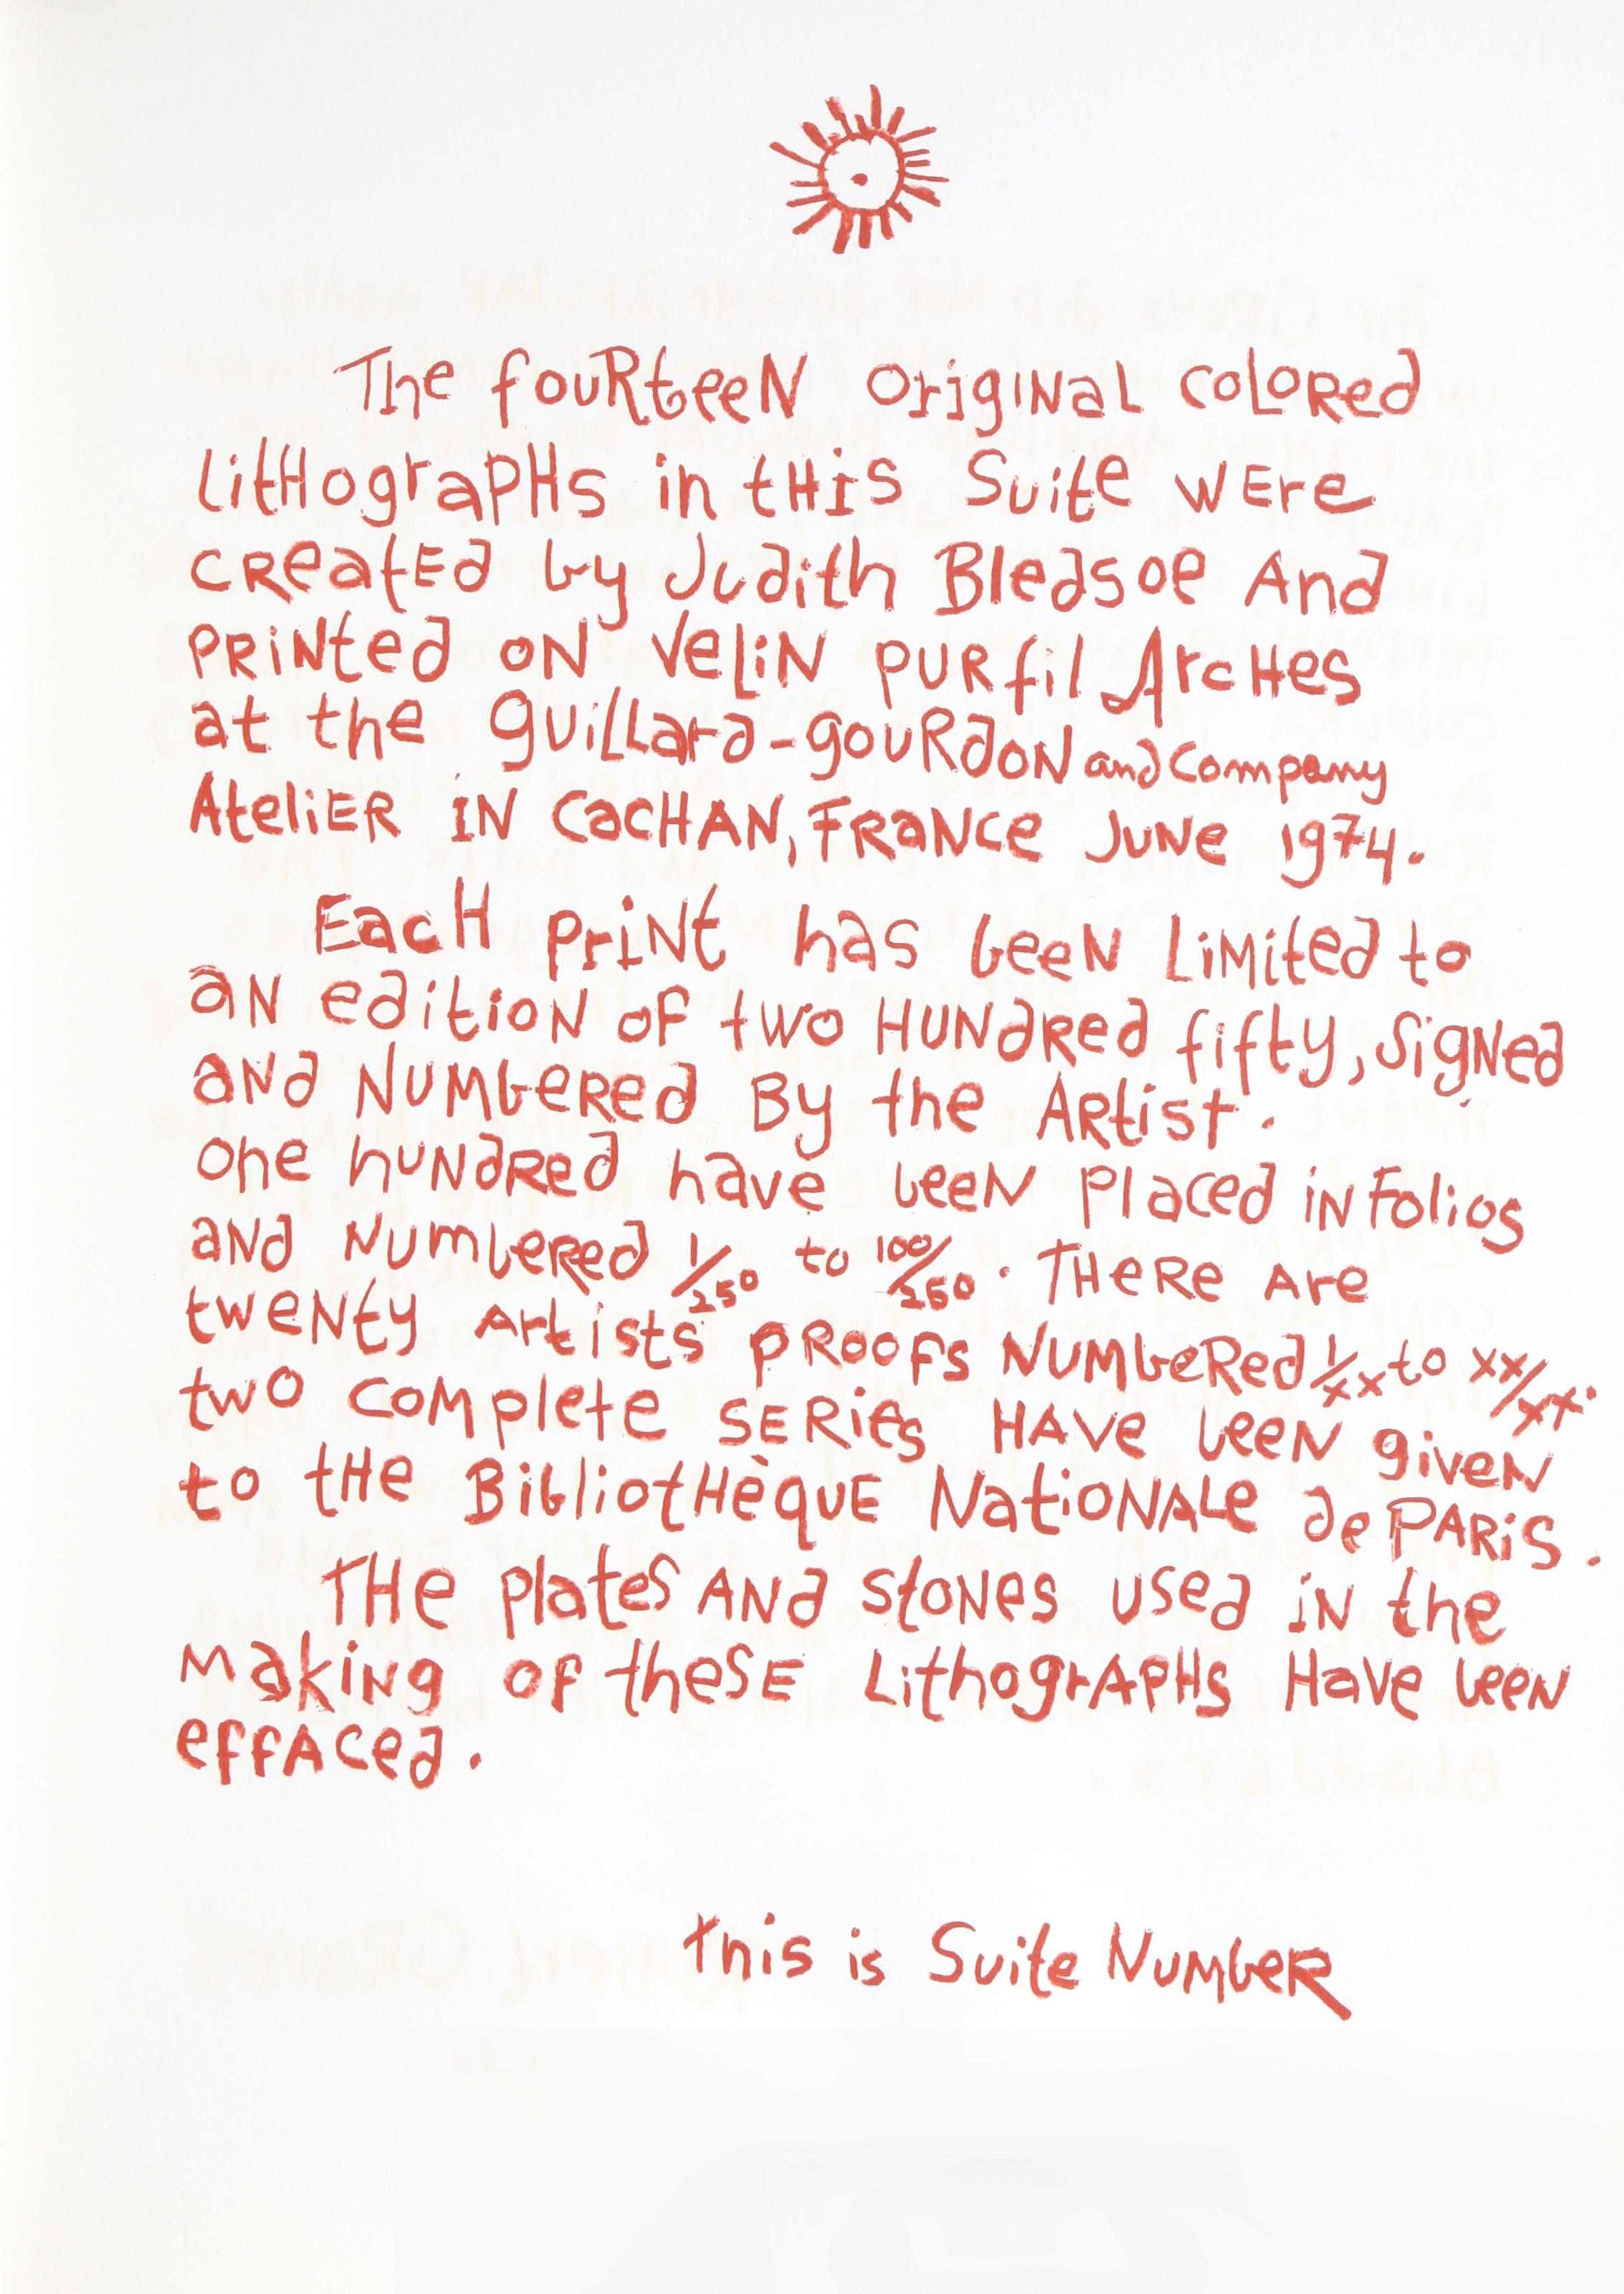 The fouRteeN OrigiNaL COLORed
LitHograPHs in tHIS Suite WEre
CReatEd by Judith Bledsoe And
PRiNted ON VeLiN PURfil ArcHes
at the guiLLard-gouRdoN and Company
AteliER IN CacHAN, FRaNce JuNe 1974.
EacH PriNt has beeN LiMited to
aN editioN of two HuNdRed fifty, SigNed
aNd NuMbeRed By the ARtist.
one huNdRed have beeN placed iN Folios
aNd NumbeRed 1/250 to 100/250. THeRe Are
tweNty Artists' PRoofs NuMbeRed 1/xx to xx/xx.
two CoMplete SERies HAVe beeN giveN
to tHe BibliotHèquE NatioNALe de PARiS.
THe Plates ANd StoNes used iN the
MakiNg oF theSE LithogrAPHs Have beeN
effAced.
This is Suite NuMbeR